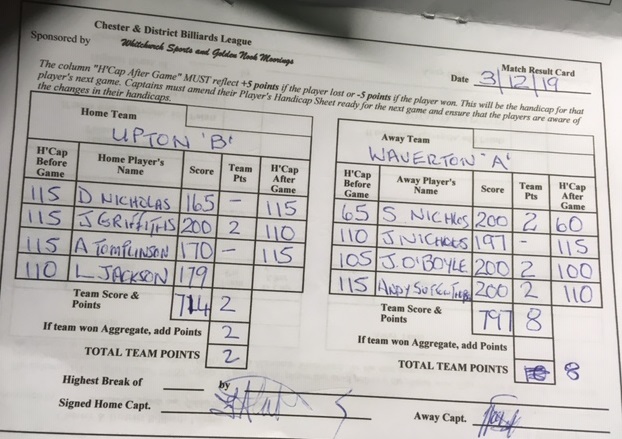 Chester & District Billiards League
Sponsored by Whitchurch Sports and Golden Nook Moorings
Match Result Card
Date 3/12/19
The column "H'Cap After Game" MUST reflect +5 points if the player lost or -5 points if the player won. This will be the handicap for that
player's next game. Captains must amend their Player's Handicap Sheet ready for the next game and ensure that the players are aware of
the changes in their handicaps.
Home Team
UPTON 'B'
H'Cap Before Game Home Player's Name Score Team Pts H'Cap After Game
115 D NICHOLAS 165 - 115
115 J GRIFFITHS 200 2 110
115 A TOMPLINSON 170 - 115
110 L JACKSON 179
Team Score & Points 714 2
If team won Aggregate, add Points 2
TOTAL TEAM POINTS 2
Away Team
WAVERTON 'A'
H'Cap Before Game Away Player's Name Score Team Pts H'Cap After Game
65 S. NICHLOS 200 2 60
110 J NICHOLS 197 - 115
105 J. O'BOYLE 200 2 100
115 ANDY 200 2 110
Team Score & Points 797 8
If team won Aggregate, add Points
TOTAL TEAM POINTS 8
Highest Break of by
Signed Home Capt.
Away Capt.